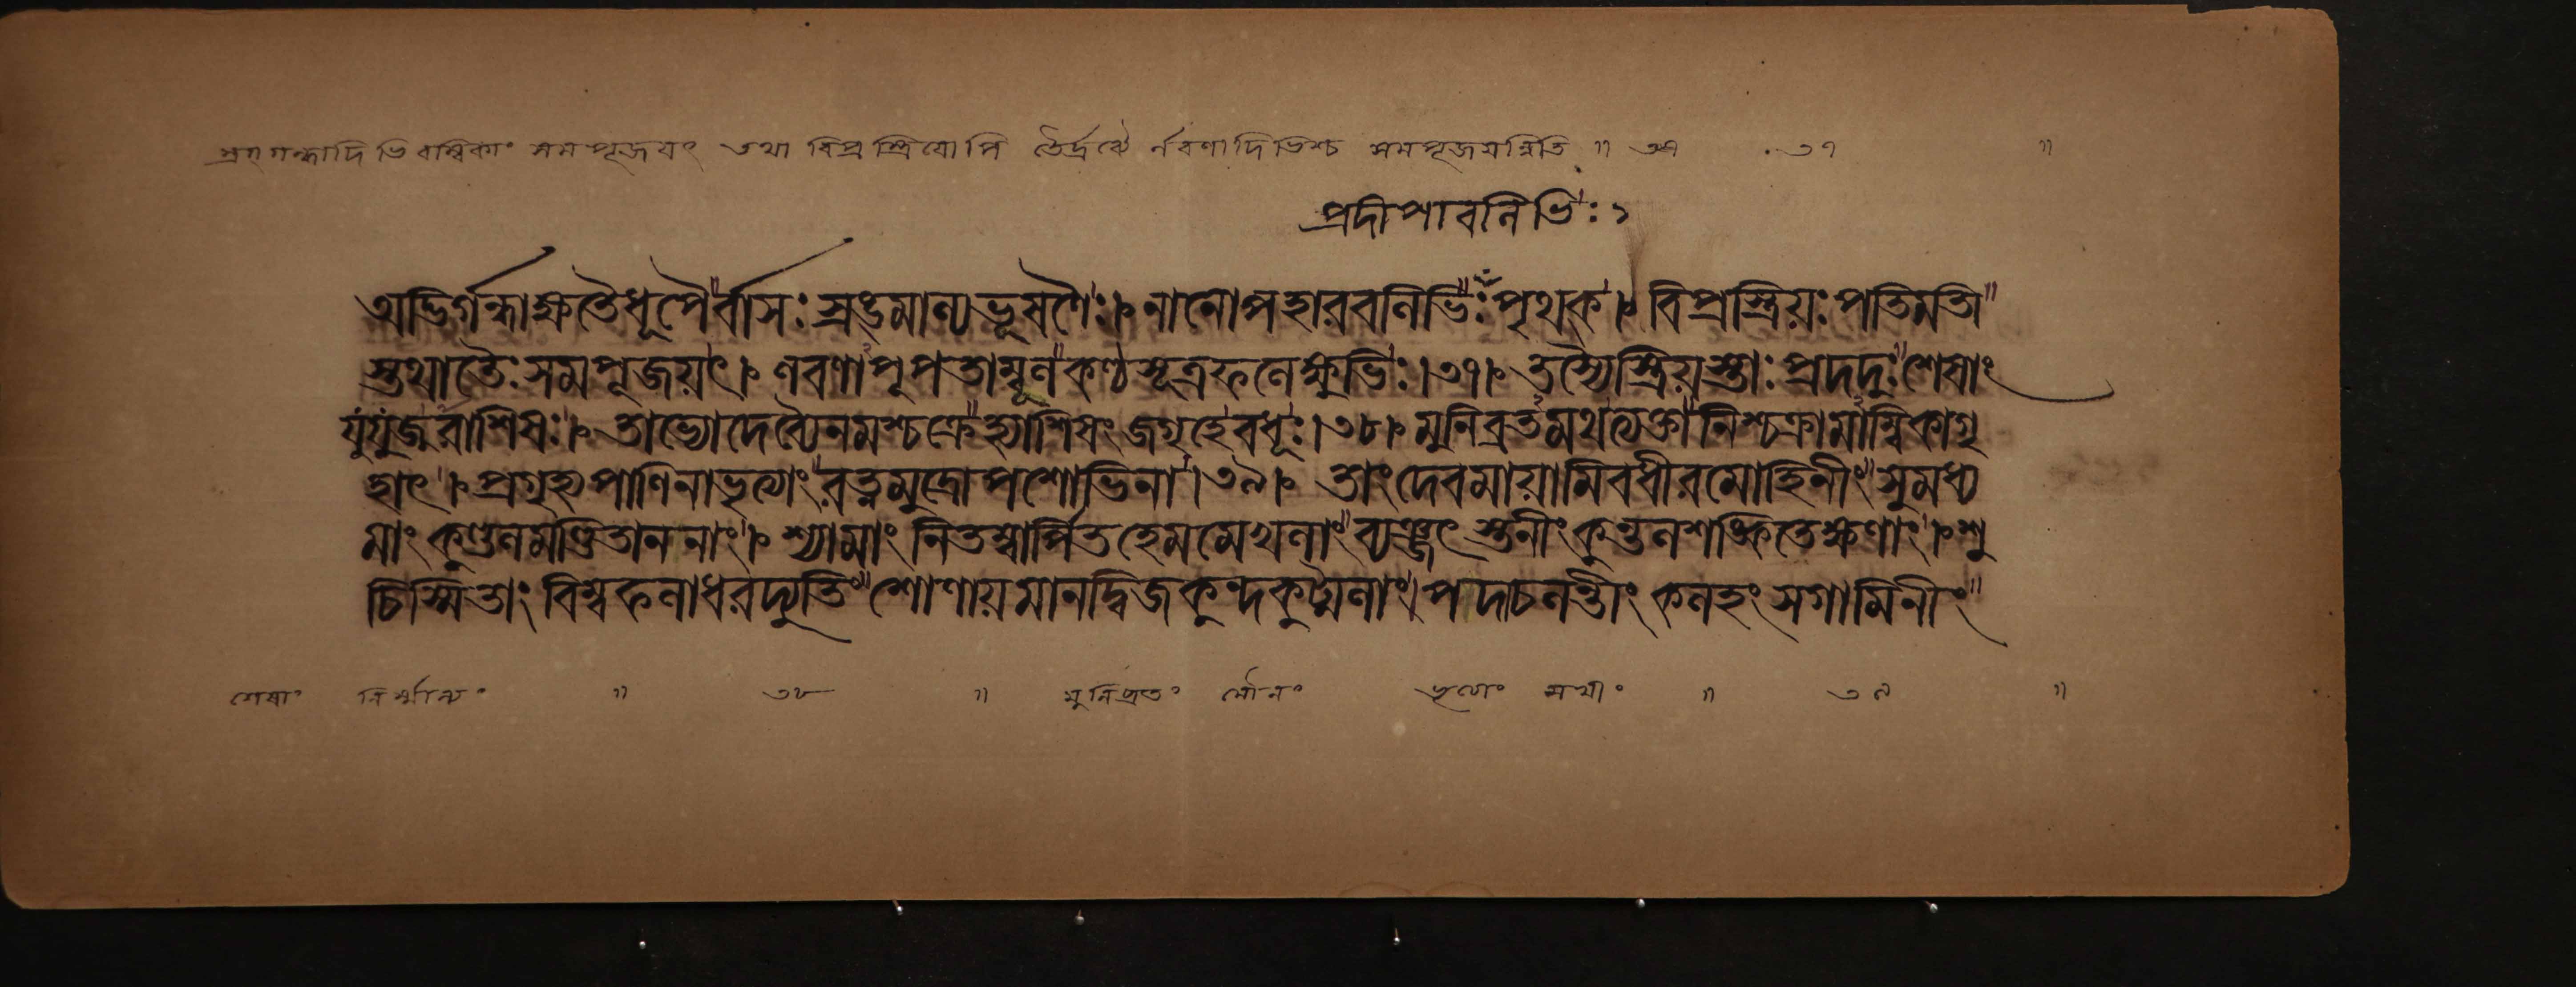 স্রগ্গন্ধাদিভিরম্বিকাং সমপূজয়ৎ তথা বিপ্রস্ত্রিয়োপি তৈর্দ্রব্যৈ র্লবণাদিভিশ্চ সমপূজয়ন্নিতি ॥ ৩৭ ৩৭ ॥
প্রদীপাবলিভিঃ ১
অদ্ভির্গন্ধাক্ষতৈধূপৈর্বাসঃস্রঙমাল্যভূষণৈঃ। নানোপহারবলিভিঃ পৃথক্। বিপ্রস্ত্রিয়ঃ পতিমতী
স্তথাতৈঃ সমপূজয়ৎ। লবণাপূপতাম্বূলকণ্ঠসূত্রফলেক্ষুভিঃ।৩৭। তস্যৈস্ত্রিয়স্তাঃ প্রদদুঃ শেষাং
যুযুজুরাশিষঃ। তাভ্যোদেব্যৈনমশ্চক্রেহ্যাশিষংজগৃহেবধূঃ।৩৮। মুনিব্রতমথত্যক্তা নিশ্চক্রামাম্বিকাগৃ
হাৎ। প্রগৃহ্যপাণিনাভৃত্যাং রত্নমুদ্রোপশোভিনা।৩৯। তাংদেবমায়ামিবধীরমোহিনীং সুমধ্য
মাংকুণ্ডলমণ্ডিতাননাং। শ্যামাংনিতম্বার্পিতহেমমেখলাং ব্যঞ্জৎস্তনীংকুন্তলশঙ্কিতেক্ষণাং। শু
চিস্মিতাং বিম্বফলাধরদ্যুতিং শোণায়মানদ্বিজকুন্দকুট্মলাং। পদাচলন্তীং কলহংসগামিনীং
শেষাং নির্ম্মাল্যং ॥ ৩৮ ॥ মুনিব্রতং মৌনং ভৃত্যাং সখীং ॥ ৩৯ ॥